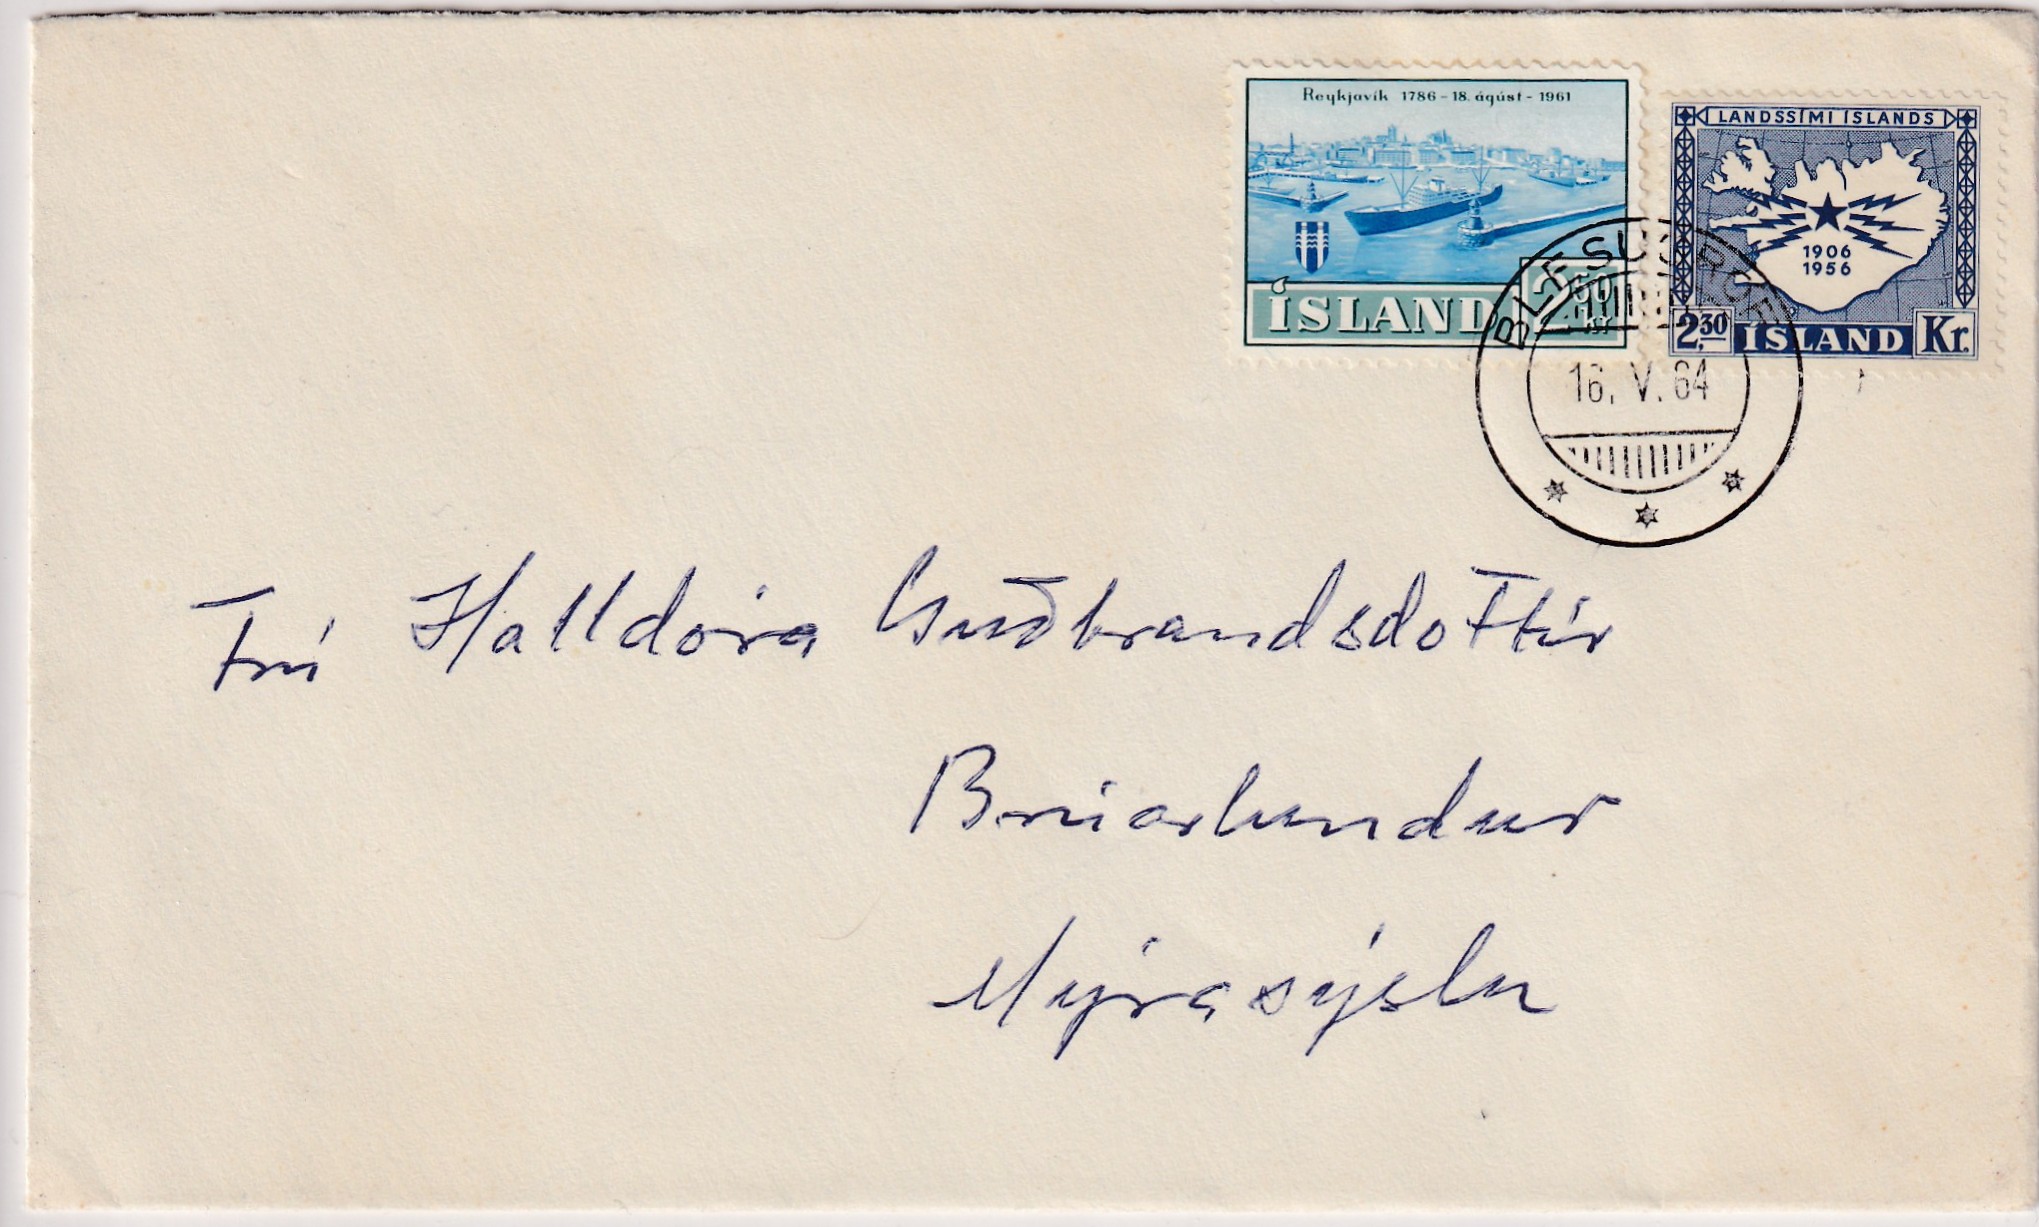 Reykjavík 1786 - 18. ágúst - 1961
ÍSLAND 2 50 kr
LANDSSÍMI ÍSLANDS
1906
1956
2,30 ÍSLAND Kr.
BLESUGRÓF
16. V. 64
Frú Halldóra Guðbrandsdóttir
Brúarlundur
Mýrasýslu